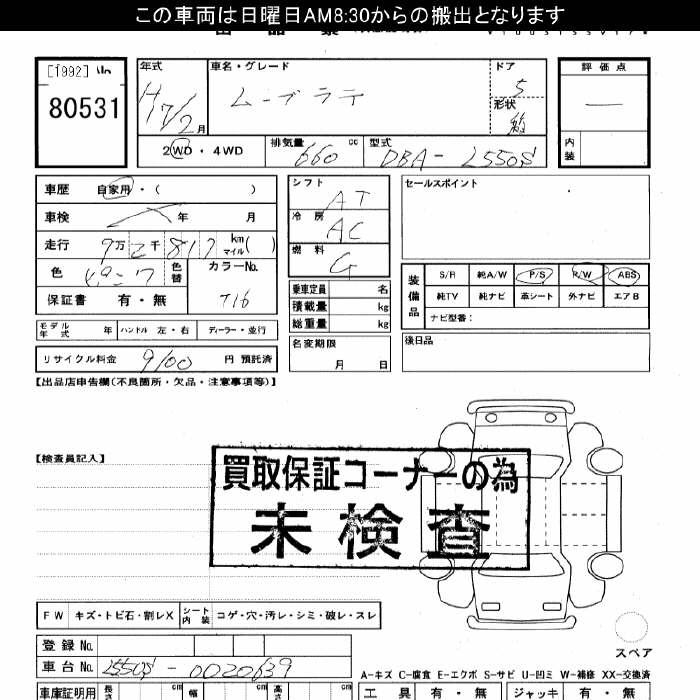 この車両は日曜日AM8:30からの搬出となります
[1992] 山
80531
年式
H17/2月
車名・グレード
ムーブラテ
ドア
5
形状
箱
評価点
—
内装
2WD・4WD
排気量
660 cc
型式
DBA-L550S
車歴 自家用・( )
車検 年 月
走行 9万2千817 km マイル( )
色 ピンク 色替
カラーNo.
T16
保証書 有・無
シフト
AT
冷房
AC
燃料
G
乗車定員 名
積載量 kg
総重量 kg
名変期限
月 日
セールスポイント
装備品
S/R 純A/W P/S P/W ABS
純TV 純ナビ 革シート 外ナビ エアB
ナビ型番:
後日品
モデル年式 年 ハンドル 左・右 ディーラー・並行
リサイクル料金 9100 円 預託済
【出品店申告欄(不良箇所・欠品・注意事項等)】
【検査員記入】
買取保証コーナーの為
未検査
FW キズ・トビ石・割レX シート内装 コゲ・穴・汚レ・シミ・破レ・スレ
スペア
登録No.
車台No. L550S-0020639
A-キズ C-腐食 E-エクボ S-サビ U-凹ミ W-補修 XX-交換済
車庫証明用 長さ cm 幅 cm 高さ cm
工具 有・無 ジャッキ 有・無